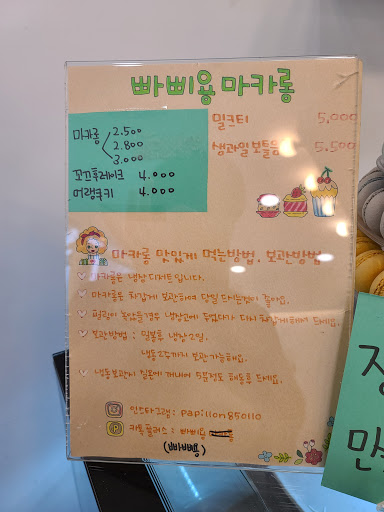 빠삐용 마카롱
마카롱 2.500
2.800
3.000
꼬끄후레이크 4.000
어랭쿠키 4.000
밀크티 5,000
생과일 보틀음 5.500
마카롱 맛있게 먹는방법, 보관방법
마카롱은 냉장 디저트입니다.
마카롱은 차갑게 보관하여 당일 드시는것이 좋아요.
필링이 녹았을경우 냉장고에 두었다가 다시 차갑게해서 드세요.
보관방법 : 밀봉후 냉장 2일,
냉동 2주까지 보관 가능해요.
냉동보관시 실온에 꺼내어 5분정도 해동후 드세요.
인스타그램 : papillon85010
카톡플러스 : 빠삐용
(빠삐뽀)
장
만